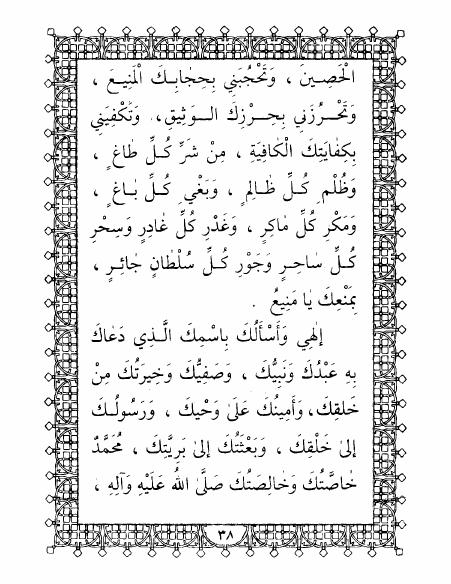 الْحَصِينَ ، وَتَحْجُبَنِي بِحِجٰابِكَ الْمَنِيعَ ،
وَتَحْرُزَنِي بِحِرْزِكَ الْوَثِيقِ، وَتَكْفِيَنِي
بِكِفٰايَتِكَ الْكٰافِيَةِ ، مِنْ شَرِّ كُلِّ طٰاغٍ ،
وَظُلْمِ كُلِّ ظٰالِمٍ ، وَبَغْيِ كُلِّ بٰاغٍ ،
وَمَكْرِ كُلِّ مٰاكِرٍ ، وَغَدْرِ كُلِّ غٰادِرٍ وَسِحْرِ
كُلِّ سٰاحِرٍ وَجَوْرِ كُلِّ سُلْطٰانٍ جٰائِرٍ ،
بِمَنْعِكَ يٰا مَنِيعُ .
إِلٰهِي وَأَسْأَلُكَ بِاسْمِكَ الَّذِي دَعٰاكَ
بِهِ عَبْدُكَ وَنَبِيُّكَ ، وَصَفِيُّكَ وَخِيرَتُكَ مِنْ
خَلقِكَ، وَأَمِينُكَ عَلىٰ وَحْيِكَ ، وَرَسُولُكَ
إِلىٰ خَلْقِكَ ، وَبَعْثَتُكَ إِلىٰ بَرِيَّتِكَ ، مُحَمَّدٌ
خٰاصَّتُكَ وَخٰالِصَتُكَ صَلَّى اللهُ عَلَيْهِ وَآلِهِ ،
٣٨